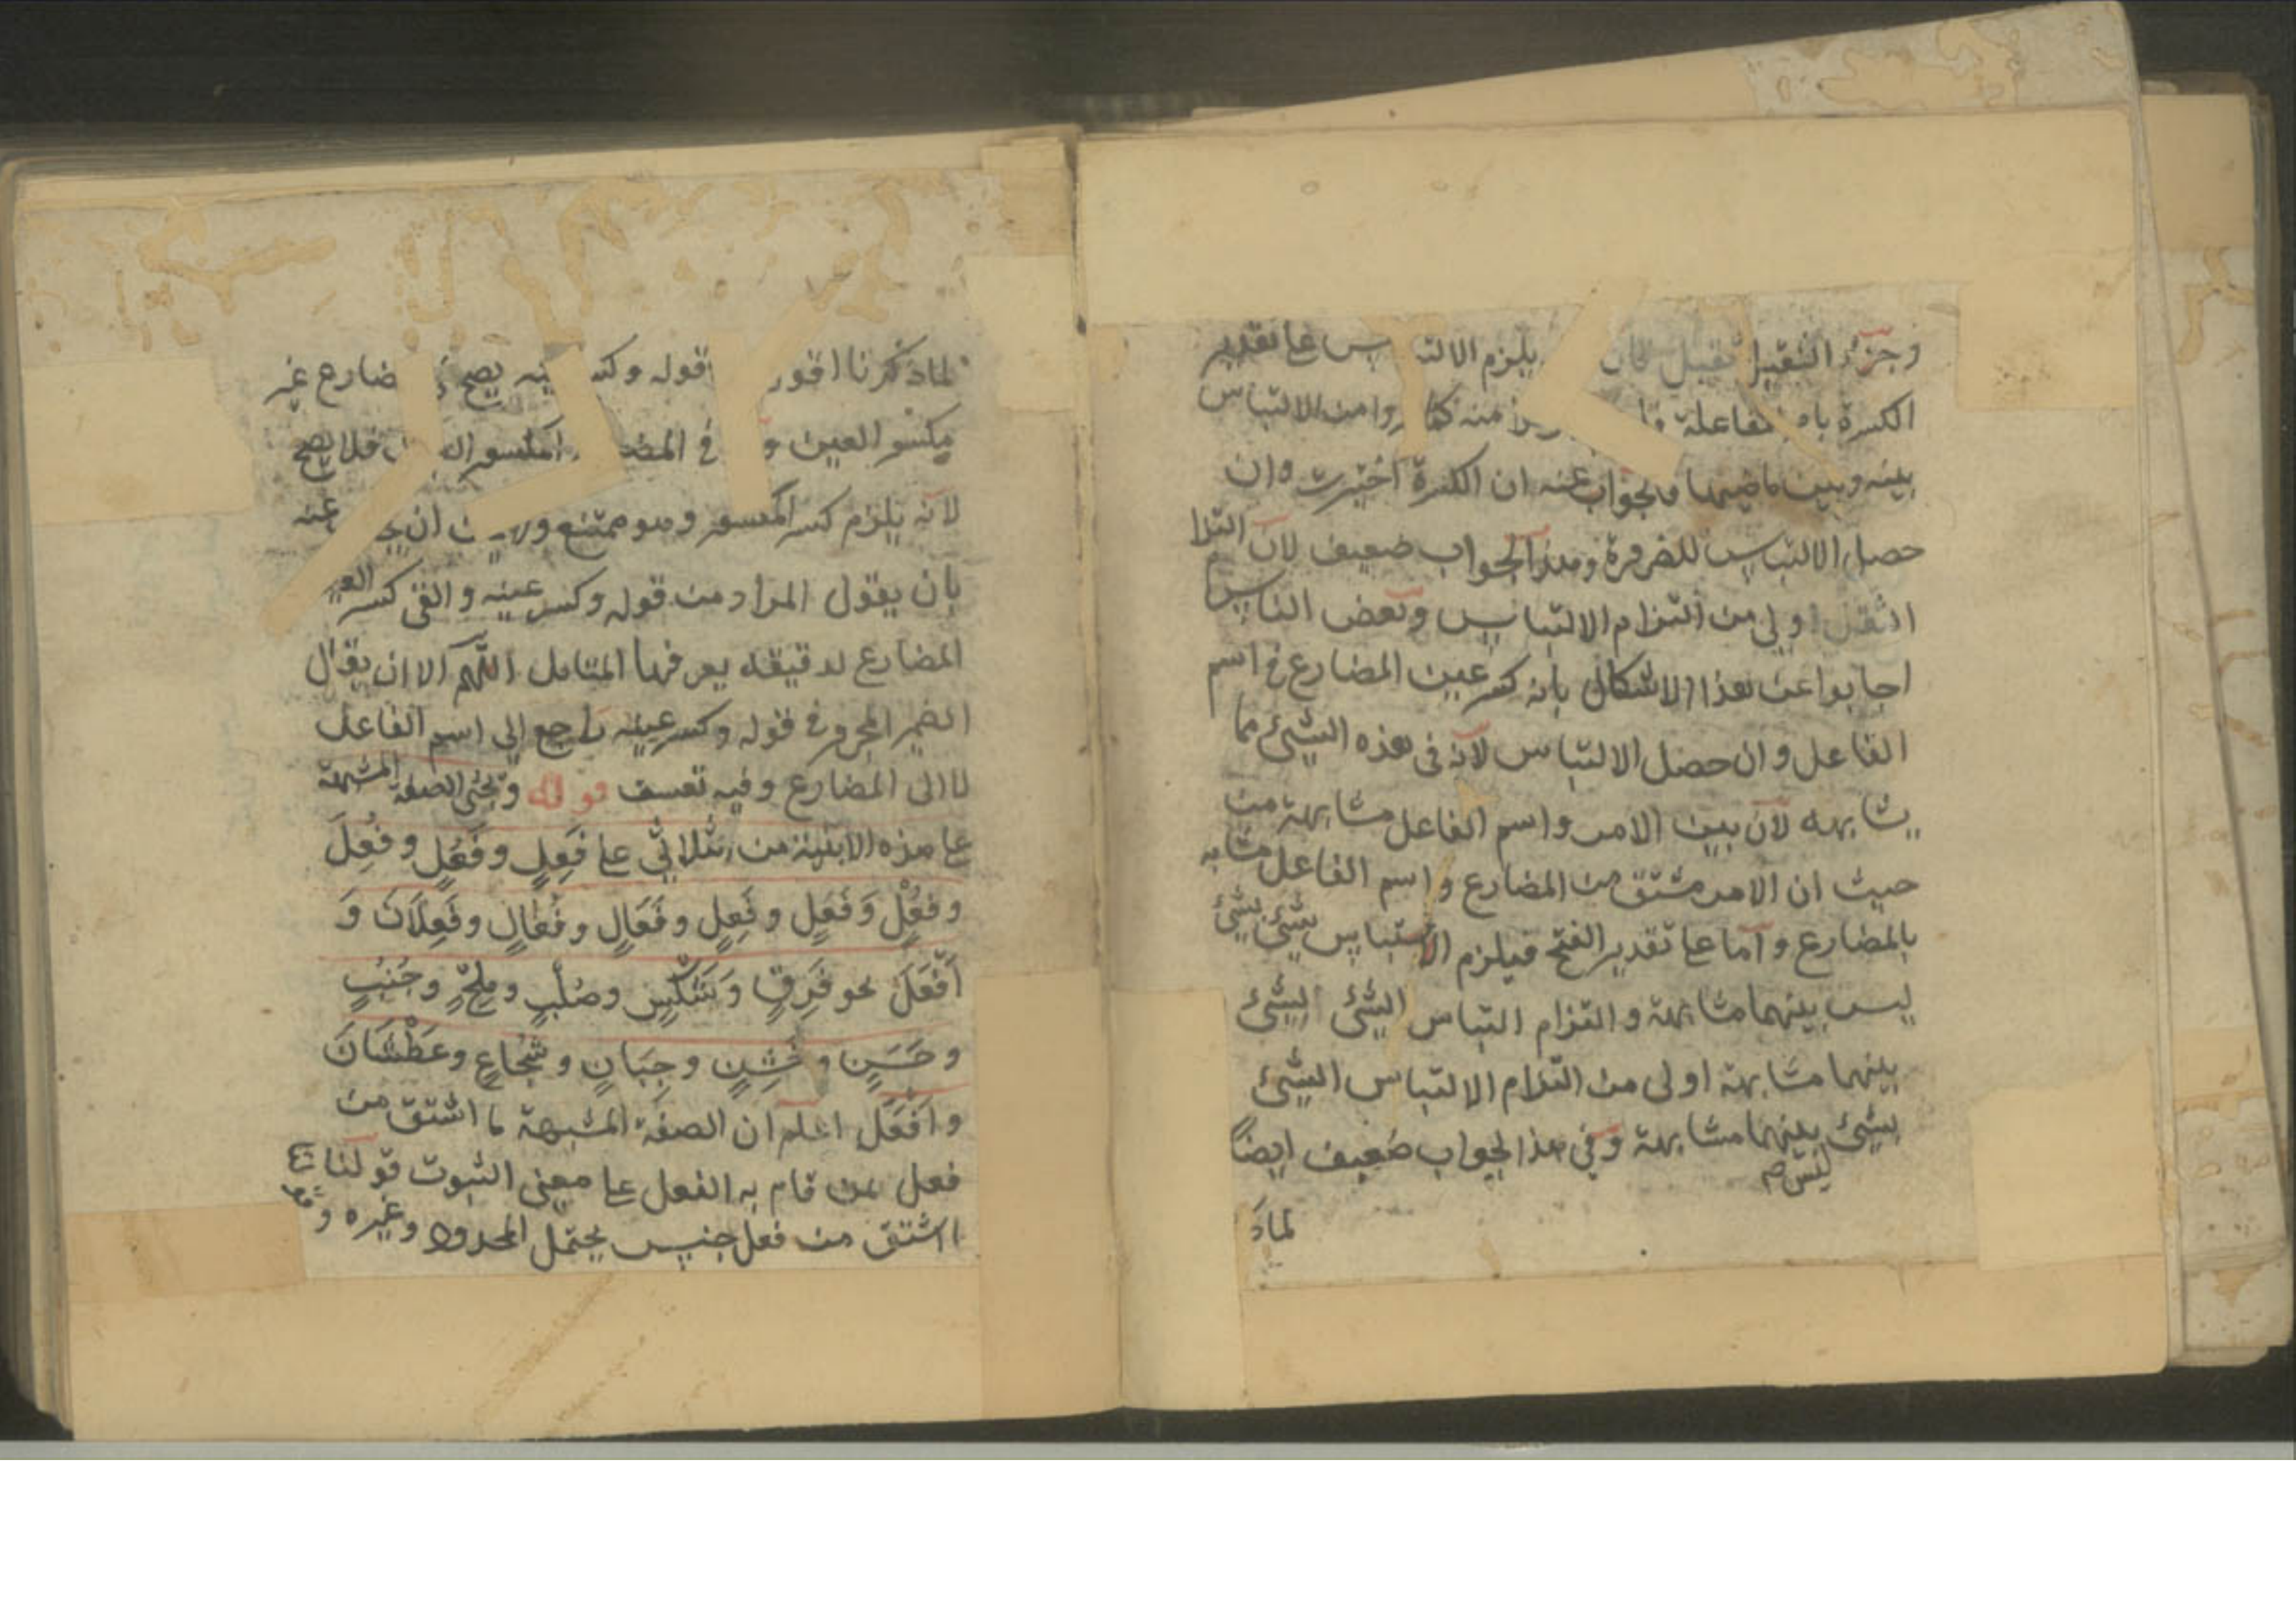 وجزؤ الثقيل ثقيل فان يلزم الالتباس علي تقدير
الكسرة بامر مفاعلة منه كما من الالتباس
بينه وبين ماضيها والجواب عنه ان الكسرة اختيرت وان
حصل الالتباس للضرورة وهذا الجواب ضعيف لان التلا
الثقل اولي من التزام الالتباس وبعض الناس
اجابوا عن هذا الاشكال بانه كسر عين المضارع في اسم
الفاعل وان حصل الالتباس لانه في هذه الشئ مما
يشابهه لان بين الامر واسم الفاعل مشابهة من
حيث ان الامر مشتق من المضارع واسم الفاعل مشابه
بالمضارع واما علي تقدير الفتح فيلزم الالتباس بشئ بشئ
ليس بينهما مشابهة والتزام التباس الشئ الشئ
بينهما مشابهة اولى من التلام الالتباس الشئ
بشئ بينهما مشابهة وفي هذا الجواب ضعيف ايضاً
ليس صح
لماذ
لماذكرنا اقول قوله وكسر عينه يصح مضارع غير
مكسو العين في المضارع المكسور العين فلا يصح
لانه يلزم كسر المكسور وهو ممتنع ان عنه
بان يقول المراد من قوله وكسر عينه والقي كسر العين
المضارع لدقيقه يعرفها المتامل اللهم الا ان يقال
الضمير المجرور في قوله وكسر عينه راجع الي اسم الفاعل
لا الى المضارع وفيه تعسف قوله وتجئ الصفة المشبهة
علي هذه الابنية من الثلاثي علي فَعِلٍ وفَعْلٍ وفُعْلَ
وفِعْلٍ وَفُعُلٍ وفَعَلٍ وفَعِلٍ وفَعَالٍ وفُعَالٍ وفَعلَانَ وَ
اَفْعَلَ نحو فَرِقٍ وَشَكْسٍ وصُلْبٍ ومِلْحٍ وجُنُبٍ
وحَسَنٍ وخَشِنٍ وجَبَانٍ وشُجَاعٍ وعَطْشَانَ
واَفْعَل اعلم ان الصفة المشبهة ما اشتق من
فعل لمن قام به الفعل علي معني الثبوت قولنا
ااشتق من فعل جنس يحتمل المحدود وغيره